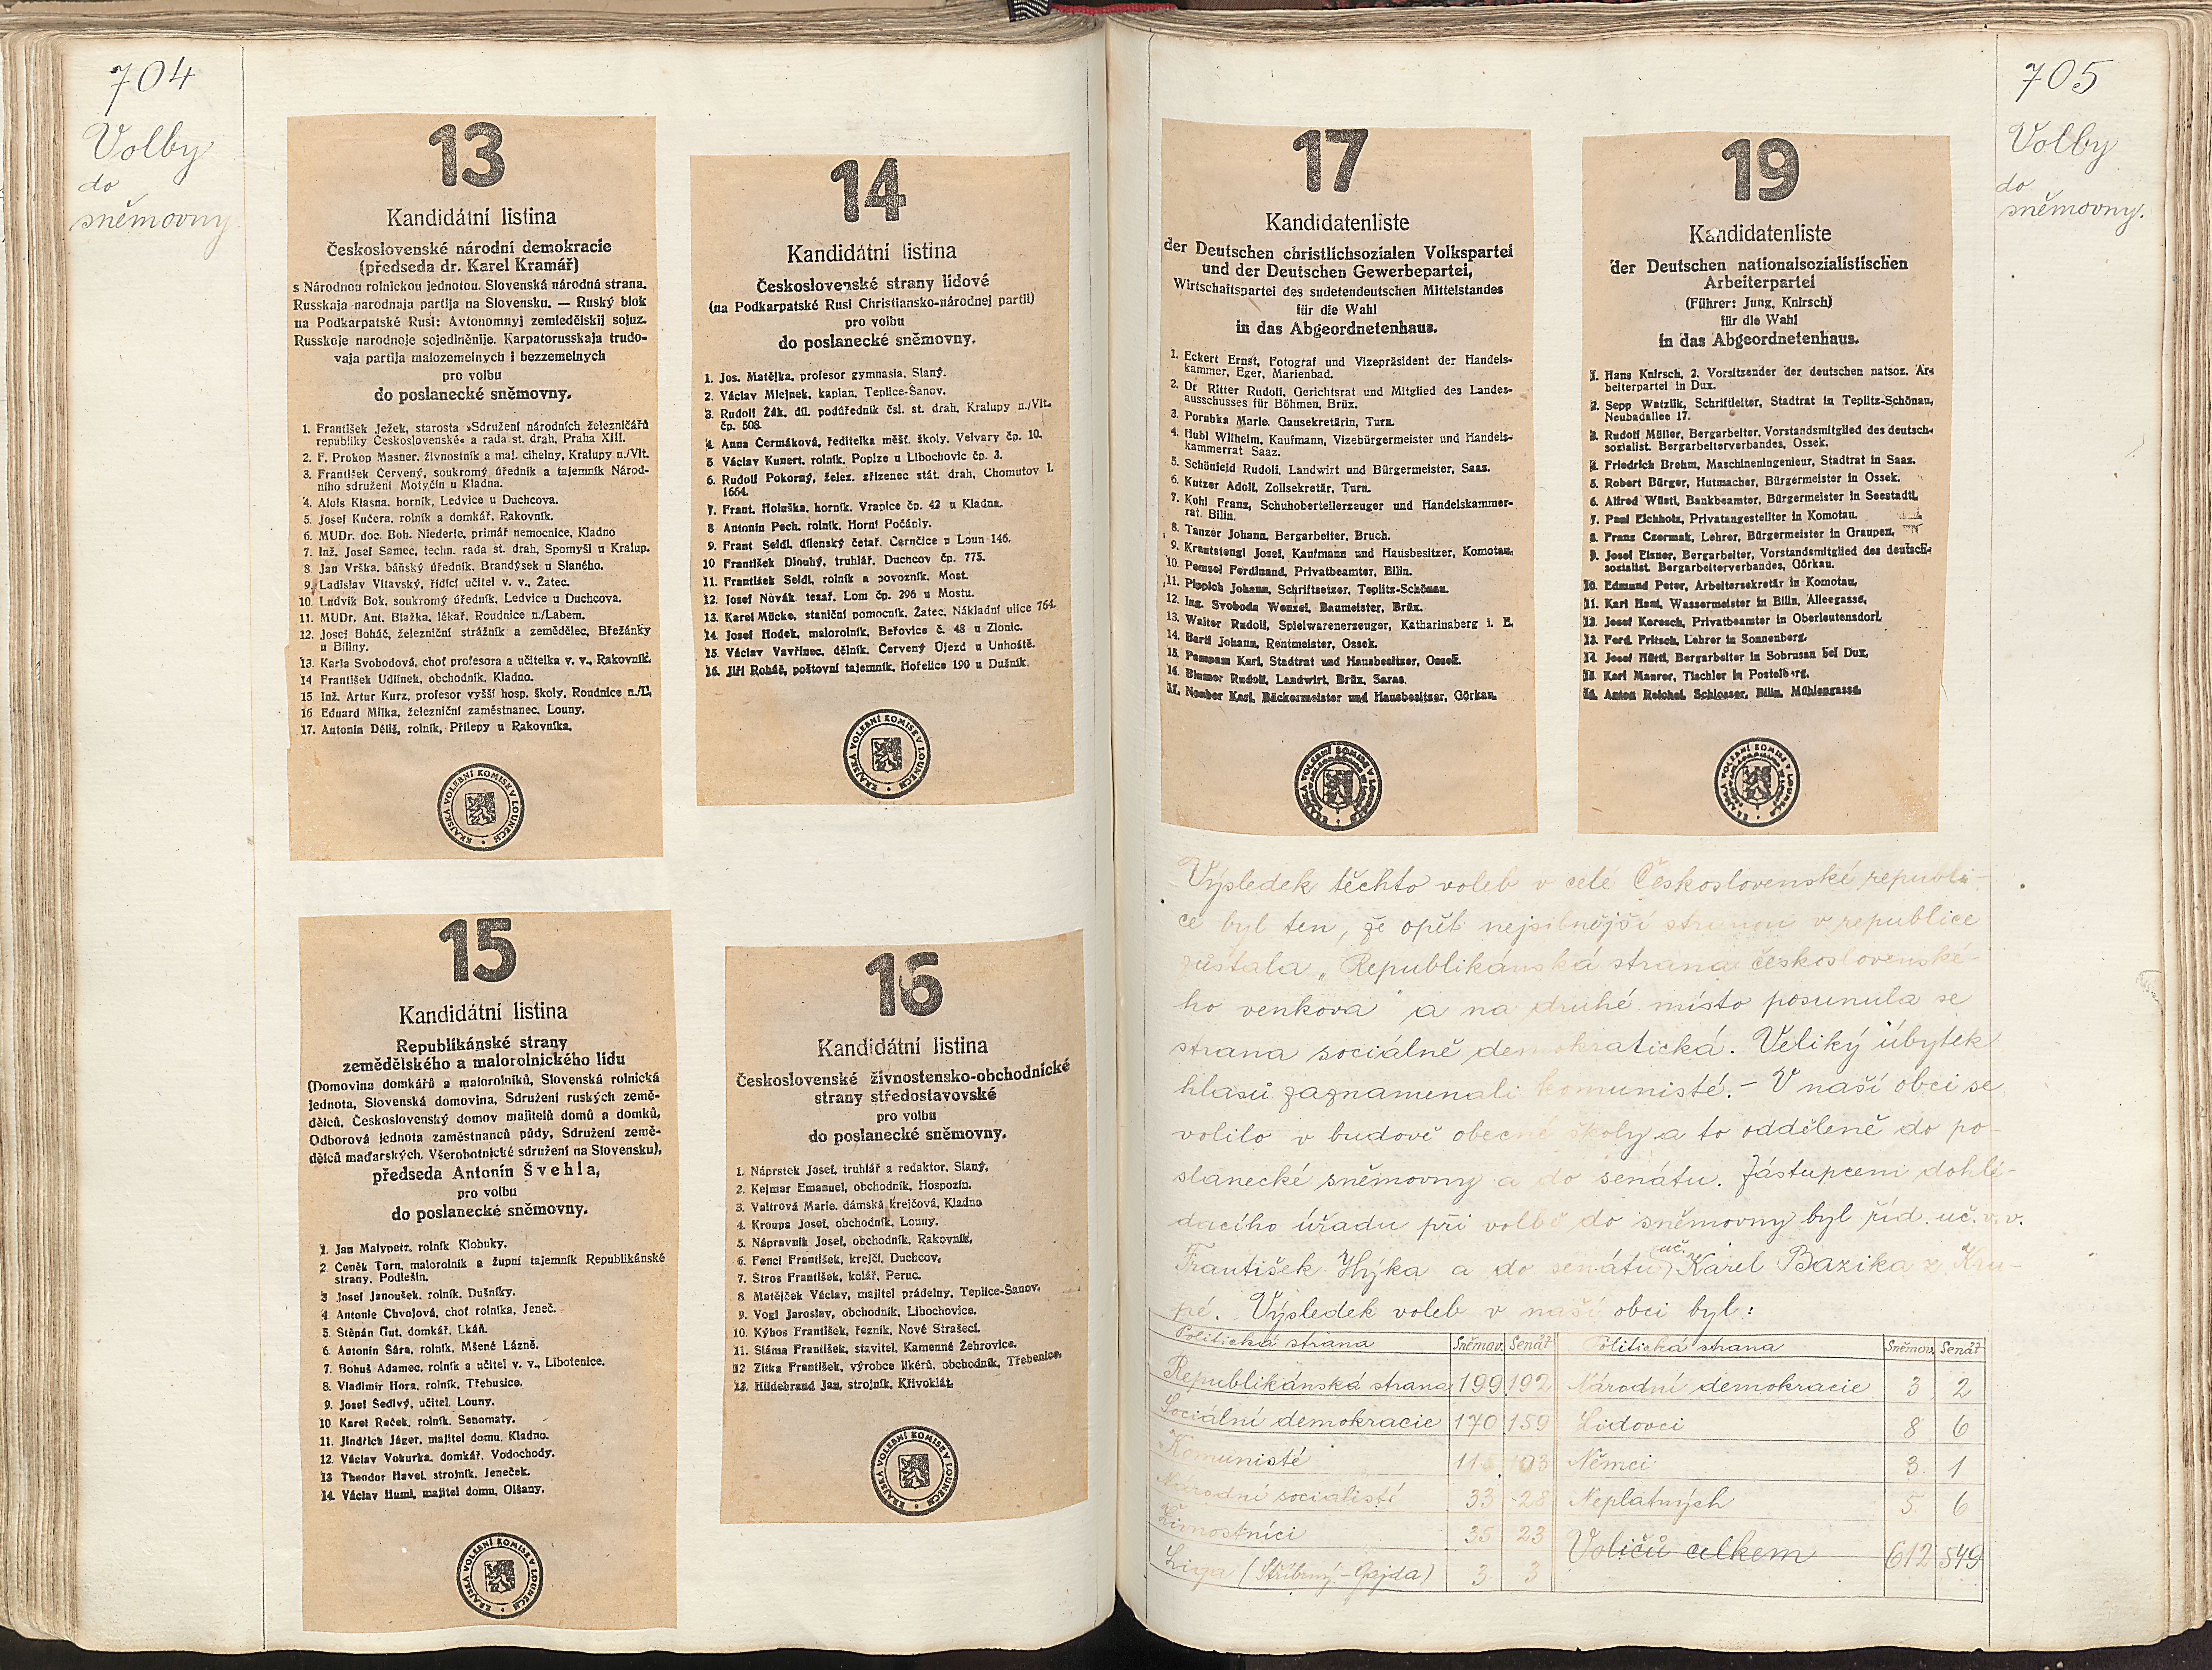 704
Volby
do
sněmovny
13
Kandidátní listina
Československé národní demokracie
(předseda dr. Karel Kramář)
s Národnou rolnickou jednotou. Slovenská národná strana.
Russkaja narodnaja partija na Slovensku. — Ruský blok
na Podkarpatské Rusi: Avtonomnyj zemledělskij sojuz.
Russkoje narodnoje sojediněnije. Karpatorusskaja trudo-
vaja partija malozemelnych i bezzemelnych
pro volbu
do poslanecké sněmovny.
1. František Ježek, starosta »Sdružení národních železničářů
republiky Československé« a rada st. drah, Praha XIII.
2. F. Prokop Masner, živnostník a maj. cihelny, Kralupy n./Vlt.
3. František Červený, soukromý úředník a tajemník Národ-
ního sdružení Motyčín u Kladna.
4. Alois Klasna, horník, Ledvice u Duchcova.
5. Josef Kučera, rolník a domkář, Rakovník.
6. MUDr. doc. Boh. Niederle, primář nemocnice, Kladno
7. Inž. Josef Samec, techn. rada st. drah, Spomyšl u Kralup.
8. Jan Vrška, báňský úředník, Brandýsek u Slaného.
9. Ladislav Vltavský, řídící učitel v. v., Žatec.
10. Ludvík Bok, soukromý úředník, Ledvice u Duchcova.
11. MUDr. Ant. Blažka, lékař, Roudnice n./Labem.
12. Josef Boháč, železniční strážník a zemědělec, Břežánky
u Bíliny.
13. Karla Svobodová, choť profesora a učitelka v. v., Rakovník.
14 František Udlínek, obchodník, Kladno.
15 Inž. Artur Kurz, profesor vyšší hosp. školy, Roudnice n./L.
16 Eduard Milka, železniční zaměstnanec, Louny.
17. Antonín Děliš, rolník, Přílepy u Rakovníka.
KRAJSKÁ VOLEBNÍ KOMISE V LOUNECH
14
Kandidátní listina
Československé strany lidové
(na Podkarpatské Rusi Christiansko-národnej partii)
pro volbu
do poslanecké sněmovny.
1. Jos. Matějka, profesor gymnasia, Slaný.
2. Václav Mlejnek, kaplan, Teplice-Šanov.
3. Rudolf Žák, díl. podúředník čsl. st. drah, Kralupy n./Vlt.
čp. 508.
4. Anna Čermáková, ředitelka měšť. školy, Velvary čp. 10.
5 Václav Kunert, rolník, Poplze u Libochovic čp. 3.
6. Rudolf Pokorný, želez. zřízenec stát. drah, Chomutov I.
1664.
7. Frant. Holuška, horník, Vrapice čp. 42 u Kladna.
8 Antonín Pech, rolník, Horní Počáply.
9. Frant Seidl, dílenský četař, Černčice u Loun 146.
10 František Dlouhý, truhlář, Duchcov čp. 775.
11. František Seidl, rolník a povozník, Most.
12. Josef Novák tesař, Lom čp. 296 u Mostu.
13. Karel Mücke, staniční pomocník, Žatec, Nákladní ulice 764.
14. Josef Hodek, malorolník, Beřovice č. 48 u Zlonic.
15. Václav Vavřinec, dělník, Červený Újezd u Unhoště.
16. Jiří Roháč, poštovní tajemník, Hořelice 190 u Dušník.
KRAJSKÁ VOLEBNÍ KOMISE V LOUNECH
15
Kandidátní listina
Republikánské strany
zemědělského a malorolnického lidu
(Domovina domkářů a malorolníků, Slovenská rolnická
jednota, Slovenská domovina, Sdružení ruských země-
dělců, Československý domov majitelů domů a domků,
Odborová jednota zaměstnanců půdy, Sdružení země-
dělců maďarských, Všerobotnické sdružení na Slovensku),
předseda Antonín Švehla,
pro volbu
do poslanecké sněmovny.
1. Jan Malypetr, rolník Klobuky.
2 Čeněk Torn, malorolník a župní tajemník Republikánské
strany, Podlešín.
3 Josef Janoušek, rolník, Dušníky.
4 Antonie Chvojová, choť rolníka, Jeneč.
5 Štěpán Gut, domkář, Lkáň.
6. Antonín Šára, rolník, Mšené Lázně.
7. Bohuš Adamec, rolník a učitel v. v., Libotenice.
8. Vladimír Hora, rolník, Třebusice.
9. Josef Šedivý, učitel, Louny.
10 Karel Reček, rolník, Senomaty.
11. Jindřich Jäger, majitel domu, Kladno.
12. Václav Vokurka, domkář, Vodochody.
13 Theodor Havel, strojník, Jeneček.
14. Václav Huml, majitel domu, Olšany.
KRAJSKÁ VOLEBNÍ KOMISE V LOUNECH
16
Kandidátní listina
Československé živnostensko-obchodnické
strany středostavovské
pro volbu
do poslanecké sněmovny.
1. Náprstek Josef, truhlář a redaktor, Slaný.
2. Kejmar Emanuel, obchodník, Hospozín.
3. Valtrová Marie, dámská krejčová, Kladno
4. Kroupa Josef, obchodník, Louny.
5. Nápravník Josef, obchodník, Rakovník.
6. Fencl František, krejčí, Duchcov.
7. Štros František, kolář, Peruc.
8 Matějček Václav, majitel prádelny, Teplice-Šanov.
9. Vogl Jaroslav, obchodník, Libochovice.
10. Kýhos František, řezník, Nové Strašecí.
11. Sláma František, stavitel, Kamenné Žehrovice.
12 Zítka František, výrobce likérů, obchodník, Třebenice.
13. Hildebrand Jan, strojník, Křivoklát.
KRAJSKÁ VOLEBNÍ KOMISE V LOUNECH
705
Volby
do
sněmovny.
17
Kandidatenliste
der Deutschen christlichsozialen Volkspartei
und der Deutschen Gewerbepartei,
Wirtschaftspartei des sudetendeutschen Mittelstandes
für die Wahl
in das Abgeordnetenhaus.
1. Eckert Ernst, Fotograf und Vizepräsident der Handels-
kammer, Eger, Marienbad.
2. Dr Ritter Rudolf, Gerichtsrat und Mitglied des Landes-
ausschusses für Böhmen, Brüx.
3. Porubka Marie, Gausekretärin, Turn.
4. Hubl Wilhelm, Kaufmann, Vizebürgermeister und Handels-
kammerrat Saaz.
5. Schönfeld Rudolf, Landwirt und Bürgermeister, Saaz.
6. Kutzer Adolf, Zollsekretär, Turn.
7. Kohl Franz, Schuhoberteilerzeuger und Handelskammer-
rat, Bilin.
8. Tanzer Johann, Bergarbeiter, Bruch.
9. Krautstengl Josef, Kaufmann und Hausbesitzer, Komotau.
10. Pomsel Ferdinand, Privatbeamter, Bilin.
11. Pippich Johann, Schriftsetzer, Teplitz-Schönau.
12. Ing. Svoboda Wenzel, Baumeister, Brüx.
13. Walter Rudolf, Spielwarenerzeuger, Katharinaberg i. E.
14. Bartl Johann, Rentmeister, Ossek.
15. Pampam Karl, Stadtrat und Hausbesitzer, Ossek.
16. Blumer Rudolf, Landwirt, Brüx, Saras.
17. Neuber Karl, Bäckermeister und Hausbesitzer, Görkau.
KRAJSKÁ VOLEBNÍ KOMISE V LOUNECH
19
Kandidatenliste
der Deutschen nationalsozialistischen
Arbeiterpartei
(Führer: Jung, Knirsch)
für die Wahl
in das Abgeordnetenhaus.
1. Hans Knirsch, 2. Vorsitzender der deutschen natsoz. Ar-
beiterpartei in Dux.
2. Sepp Watzlik, Schriftleiter, Stadtrat in Teplitz-Schönau,
Neubadallee 17.
3. Rudolf Müller, Bergarbeiter, Vorstandsmitglied des deutsch-
sozialist. Bergarbeiterverbandes, Ossek.
4. Friedrich Brehm, Maschineningenieur, Stadtrat in Saaz.
5. Robert Bürger, Hutmacher, Bürgermeister in Ossek.
6. Alfred Wüstl, Bankbeamter, Bürgermeister in Seestadtl.
7. Paul Eichholz, Privatangestellter in Komotau.
8. Franz Czermak, Lehrer, Bürgermeister in Graupen.
9. Josef Elsner, Bergarbeiter, Vorstandsmitglied des deutsch-
sozialist. Bergarbeiterverbandes, Görkau.
10. Edmund Peter, Arbeitersekretär in Komotau.
11. Karl Hanl, Wassermeister in Bilin, Alleegasse.
12. Josef Keresch, Privatbeamter in Oberleutensdorf.
13. Ferd. Fritsch, Lehrer in Sonnenberg.
14. Josef Hüttl, Bergarbeiter in Sobrusan bei Dux.
15. Karl Maurer, Tischler in Postelberg.
16. Anton Reichel, Schlosser, Bilin, Mühlengasse.
KRAJSKÁ VOLEBNÍ KOMISE V LOUNECH
Výsledek těchto voleb v celé Československé republi-
ce byl ten, že opět nejsilnější stranou v republice
zůstala „Republikánská strana československé-
ho venkova" a na druhé místo posunula se
strana sociálně demokratická. Veliký úbytek
hlasů zaznamenali komunisté. – V naší obci se
volilo v budově obecné školy a to odděleně do po-
slanecké sněmovny a do senátu. Zástupcem dohlé-
dacího úřadu při volbě do sněmovny byl říd. uč. v. v.
František Hýka a do senátu uč. Karel Bazika z Kru-
pé. Výsledek voleb v naší obci byl:
Politická strana Sněmov. Senát Politická strana Sněmov. Senát
Republikánská strana 199 192 Národní demokracie 3 2
Sociální demokracie 170 159 Lidovci 8 6
Komunisté 103 Němci 3 1
Národní socialisti 33 28 Neplatných 5 6
Živnostníci 35 23 Voličů celkem 612 549
Liga (Stříbrný – Gajda) 3 3